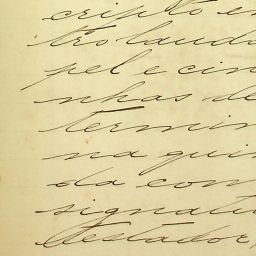 cripto e
tro lauda
pel e cin
nhas de
termin
na quin
da com
signatu
testador,